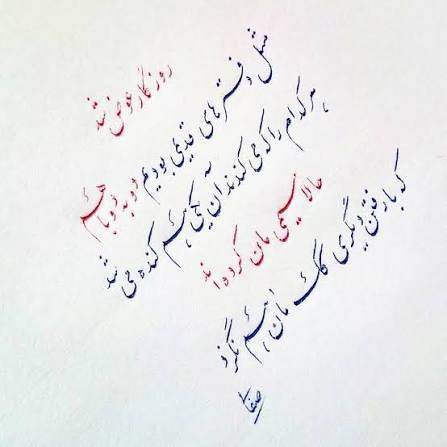 روزگار عوض شد
مثل دفترهای قدیمی بودیم دو به دو با هم
هر کدام را که می‌کندند آن یکی هم کنده می‌شد
حالا سیمی‌مان کرده‌اند
که با رفتن دیگری کک‌مان هم نگزد
صفا